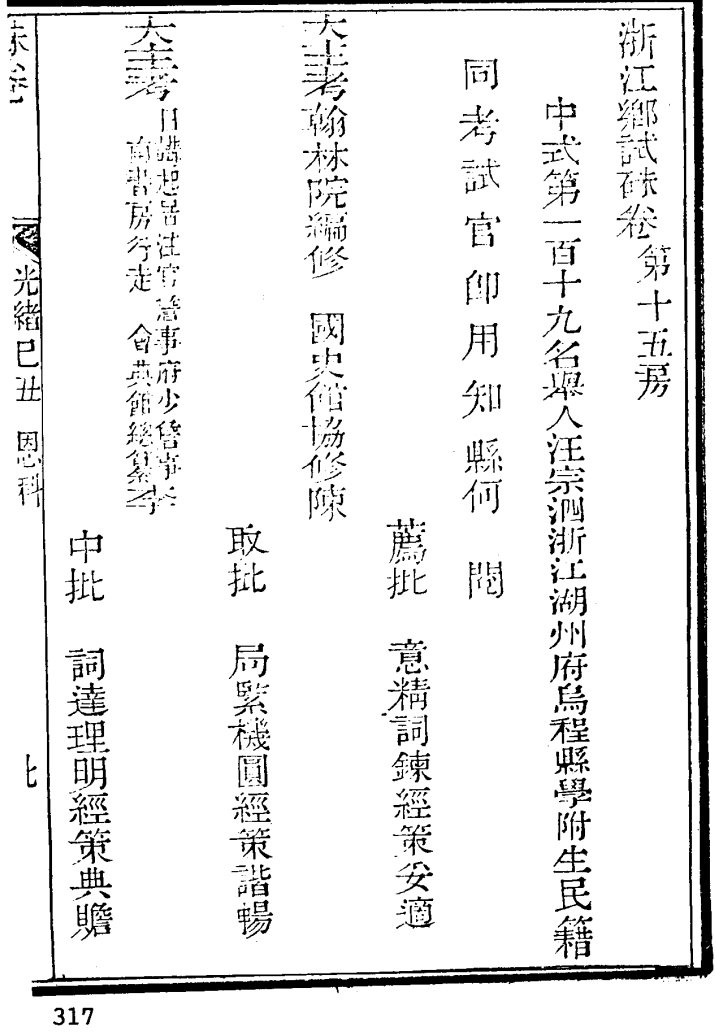 浙江鄉試硃卷 第十五房
中式第一百十九名舉人汪宗泗浙江湖州府烏程縣學附生民籍
同考試官卽用知縣何 閱
薦批 意精詞鍊經策妥適
大主考翰林院編修 國史館協修陳
取批 局緊機圓經策諧暢
大主考日講起居注官詹事府少詹事
南書房行走 會典館總纂李
中批 詞達理明經策典贍
硃卷 光緒己丑 恩科
317